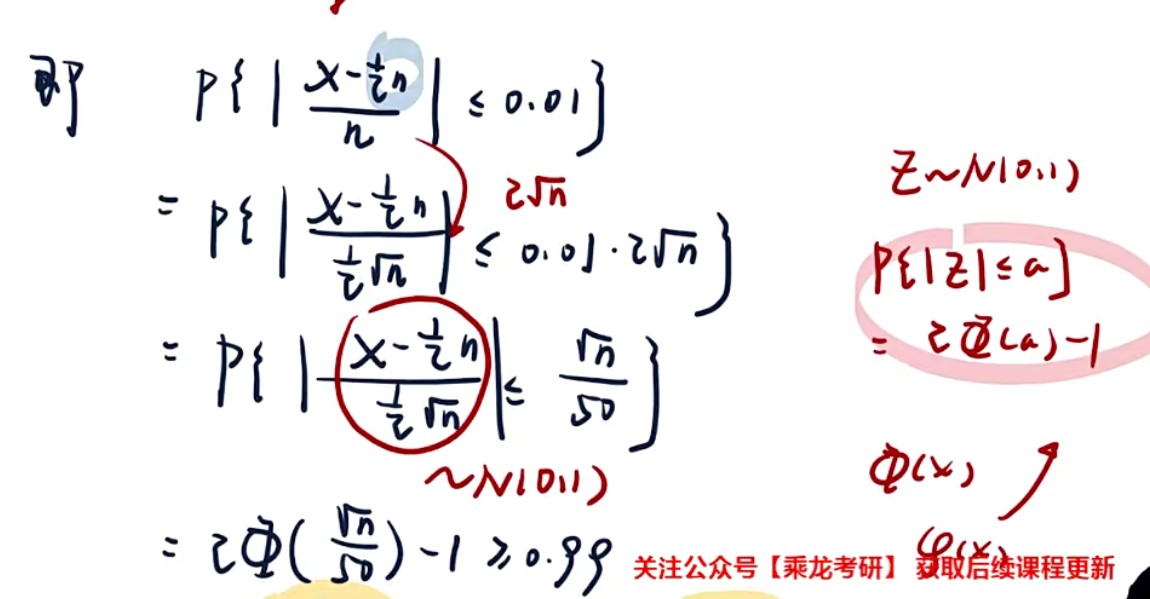 即 P{ | (X - 1/2 n) / n | ≤ 0.01 }
2√n
= P{ | (X - 1/2 n) / (1/2 √n) | ≤ 0.01 · 2√n }
= P{ | (X - 1/2 n) / (1/2 √n) | ≤ √n / 50 }
~N(0,1)
= 2Φ( √n / 50 ) - 1 ≥ 0.99
Z~N(0,1)
P{|Z| ≤ a}
= 2Φ(a) - 1
Φ(x)
φ(x)
关注公众号【乘龙考研】 获取后续课程更新